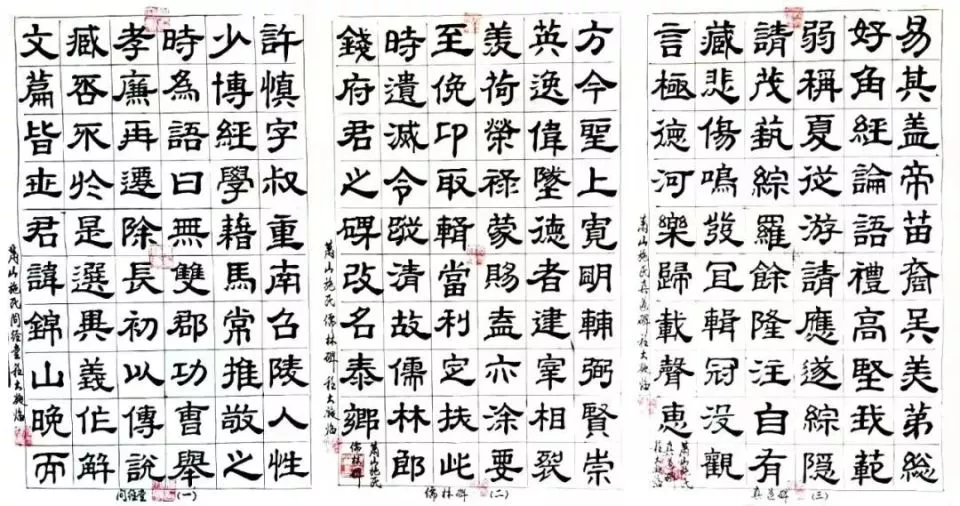 許慎字叔重南召陵人性
少博經學藉馬常推敬之
時為語曰無雙郡功曹舉
孝廉再遷除長初以傳說
臧否不於是選異義作解
文篇皆世君諱錦山晚而
蕭山施氏問經堂
問經堂(一)
方今聖上寬明輔弼賢崇
英逸偉墜德者建宰相裂
羨荷榮祿蒙賜盍亦涂要
至俛印取輯當利定扶此
時遺滅令蹤清故儒林郎
錢府君之碑改名泰鄉
蕭山施氏儒林碑
蕭山施氏
儒林碑
儒林碑(二)
易其蓋帝苗裔吳美第總
好角經論語禮高堅我範
弱稱夏從游請應遂綜隱
請茂執綜羅餘隆注自有
藏悲傷鳴發宜輯冠沒觀
言極德河樂歸載聲惠
蕭山施氏
(三)